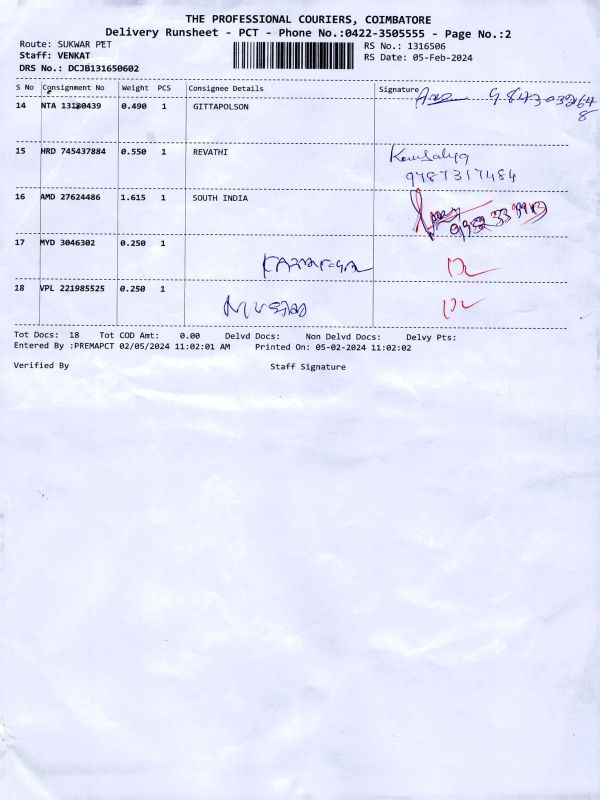 THE PROFESSIONAL COURIERS, COIMBATORE
Delivery Runsheet - PCT - Phone No.:0422-3505555 - Page No.:2
Route: SUKWAR PET
RS No.: 1316506
Staff: VENKAT
RS Date: 05-Feb-2024
DRS No.: DCJB131650602
S No Consignment No Weight PCS Consignee Details Signature
14 NTA 13180439 0.490 1 GITTAPOLSON
15 HRD 745437884 0.550 1 REVATHI Kousalya
9787317484
16 AMD 27624486 1.615 1 SOUTH INDIA
17 MYD 3046302 0.250 1
18 VPL 221985525 0.250 1
Tot Docs: 18 Tot COD Amt: 0.00 Delvd Docs: Non Delvd Docs: Delvy Pts:
Entered By :PREMAPCT 02/05/2024 11:02:01 AM Printed On: 05-02-2024 11:02:02
Verified By Staff Signature